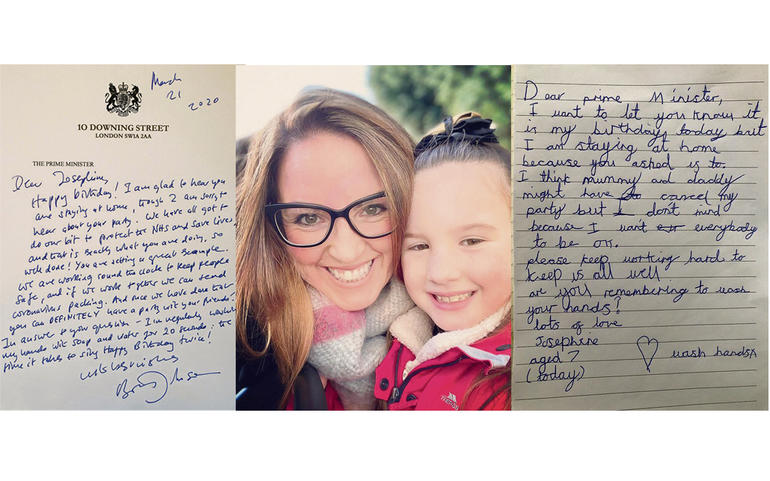 March
21
2020
10 DOWNING STREET
LONDON SW1A 2AA
THE PRIME MINISTER
Dear Josephine,
Happy birthday! I am glad to hear you
are staying at home, though I am sorry to
hear about your party. We have all got to
do our bit to protect the NHS and save lives
and that is exactly what you are doing, so
well done! You are setting a great example.
We are working round the clock to keep people
safe, and if we work together we can send
coronavirus packing. And once we have done that
you can DEFINITELY have a party with your friends!
In answer to your question - I'm regularly washing
my hands with soap and water for 20 seconds: the
time it takes to sing Happy Birthday twice!
with best wishes
TRESPASS
Dear prime Minister,
I want to let you know it
is my birthday today but
I am staying at home
because you asked is to.
I think mummy and daddy
might have cancel my
party but I don't mind
because I want everybody
to be ok.
please keep working hard to
keep is all well
are you remembering to wash
your hands?
lots of love
Josephine
aged 7
(today)
wash hands